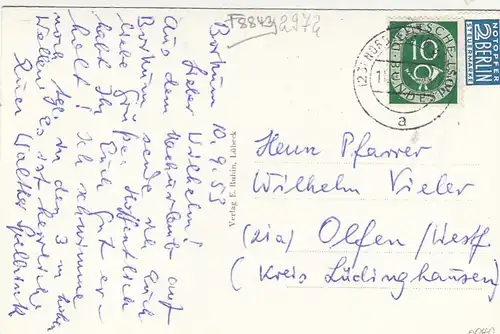 F8843 2972
Borkum 10.9.53
Lieber Wilhelm!
Aus dem Nachurlaub auf
Borkum sende ich Euch
liebe Grüße. Hoffentlich
habt Ihr Euch gut er-
holt! Ich schwimme
noch tgl. in den 3 m hohen
Wellen; es ist herrlich
Euer Walther
Verlag E. Rubin, Lübeck
a
10
DEUTSCHE BUNDESPOST
NOTOPFER
2 BERLIN
STEUERMARKE
Herrn Pfarrer
Wilhelm Vieler
(21a) Olfen/Westf
(Kreis Lüdinghausen)